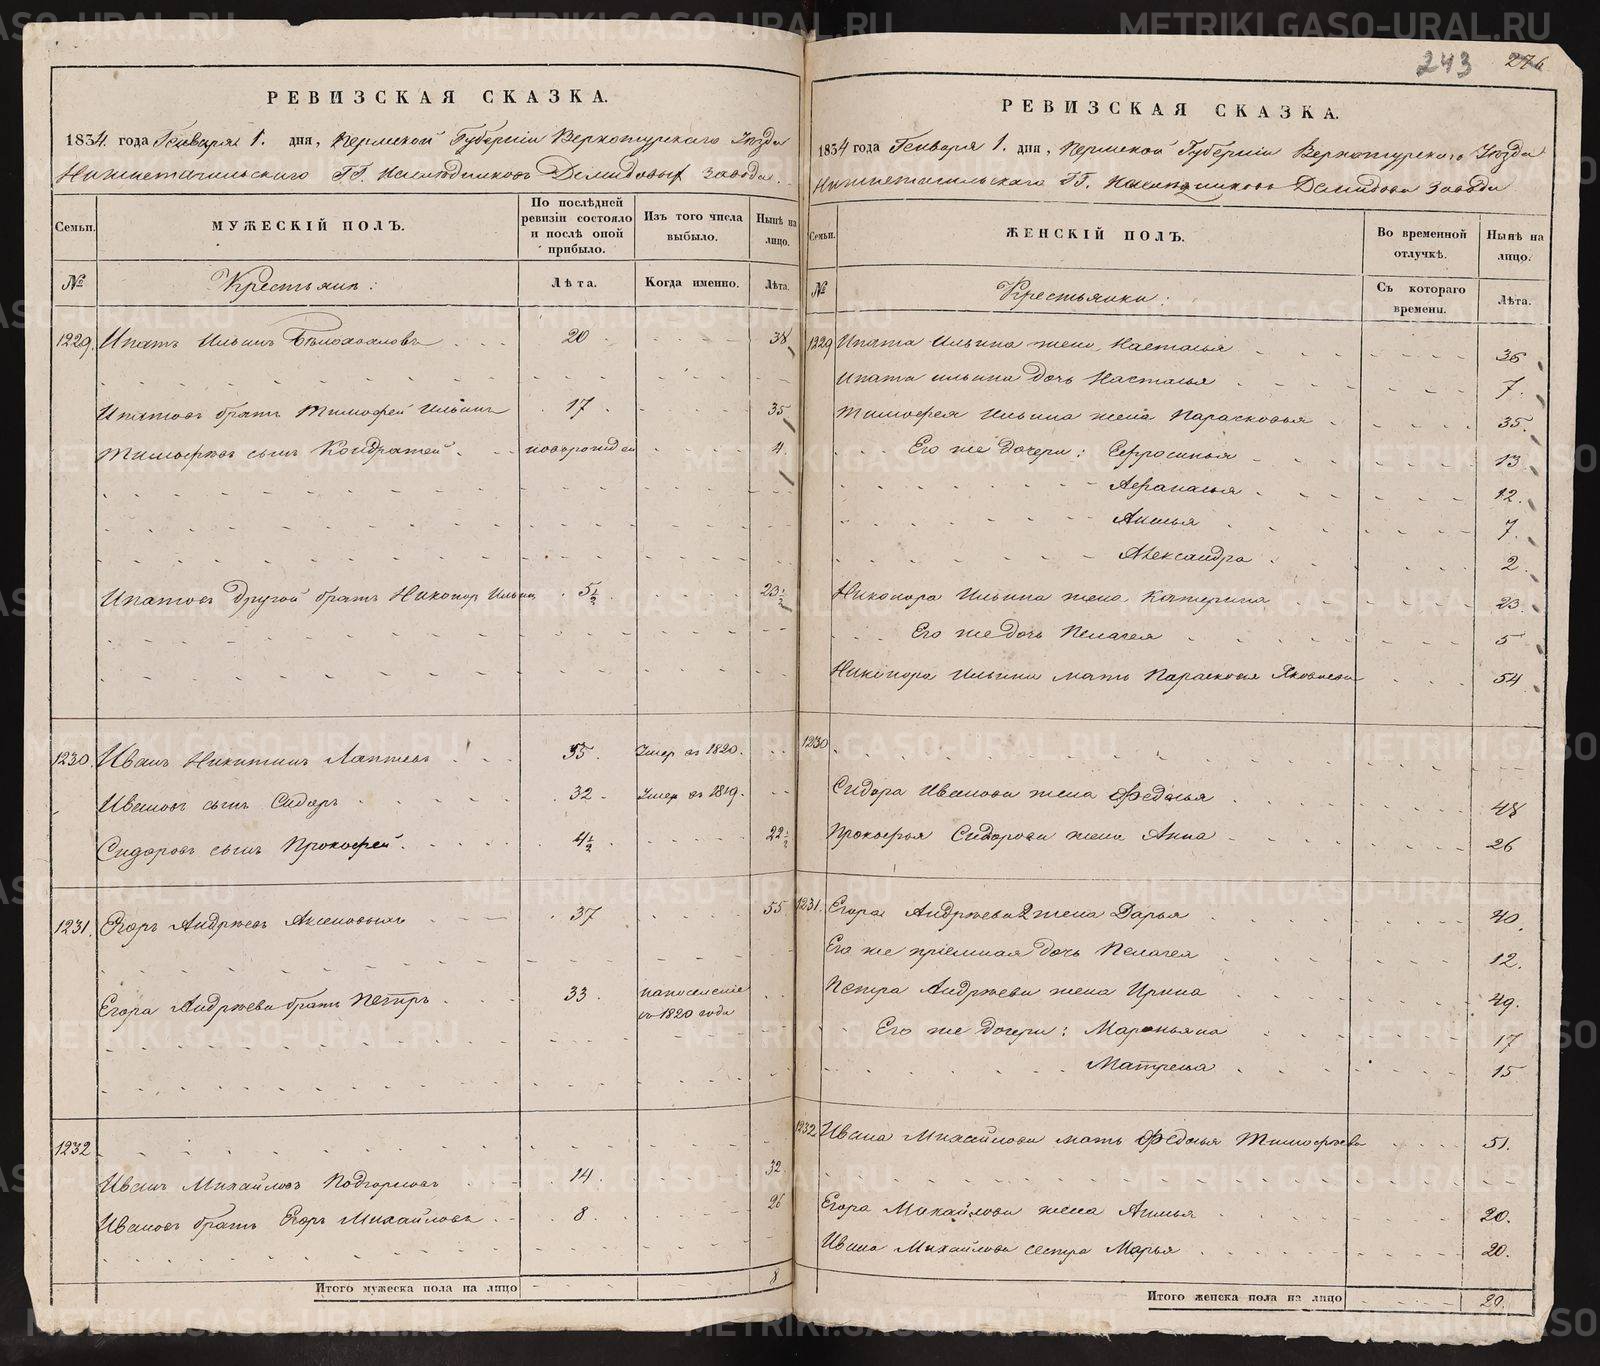 243 276
РЕВИЗСКАЯ СКАЗКА.
1834 года Генваря 1. дня, Пермской Губерніи Верхотурскаго Уѣзда
Нижнетагильскаго ГГ. Наслѣдниковъ Демидовыхъ завода.
Семьи.
МУЖЕСКІЙ ПОЛЪ.
По послѣдней ревизіи состояло и послѣ оной прибыло.
Изъ того числа выбыло.
Нынѣ на лицо.
№
Крестьяне:
Лѣта.
Когда именно.
Лѣта.
1229. Ипатъ Ильинъ 20 38
Ипатовъ братъ Тимофей Ильинъ 17 35
Тимофѣевъ сынъ Кондратей новорожден 4
Ипатовъ другой братъ Никонор Ильин 5½ 23½
1230. Иванъ Никитинъ Лаптевъ 55 Умер въ 1820.
Ивановъ сынъ Сидоръ 32 Умер въ 1819.
Сидоровъ сынъ Прокофей 4½ 22½
1231. Егоръ Андрѣевъ Аксеновыхъ 37 55
Егора Андрѣева братъ Петръ 33 на поселеніе
въ 1820 года
1232
Иванъ Михайловъ Подгорновъ 14 32
Ивановъ братъ Егоръ Михайловъ 8 26
Итого мужеска пола на лицо 8
РЕВИЗСКАЯ СКАЗКА.
1834 года Генваря 1. дня, Пермской Губерніи Верхотурскаго Уѣзда
Нижнетагильскаго ГГ. Наслѣдниковъ Демидовы завода
Семьи.
ЖЕНСКІЙ ПОЛЪ.
Во временной отлучкѣ.
Нынѣ на лицо.
№
Крестьянки:
Съ котораго времени.
Лѣта.
1229 Ипата Ильина жена Настасья 36
Ипата Ильина дочь Настасья 7.
Тимофея Ильина жена Парасковья 35.
Его же дочери: Ефросинья 13
Афанасья 12.
Анисья 7.
Александра 2
Никонора Ильина жена Катерина 23
Его же дочь Пелагея 5
Никонора Ильина мать Парасковья Яковлева 54
1230
Сидора Иванова жена Федосья 48
Прокофья Сидорова жена Анна 26
1231. Егора Андрѣева 2 жена Дарья 40.
Его же пріемная дочь Пелагея 12.
Петра Андрѣева жена Ирина 49.
Его же дочери: Маремьяна 17
Матрена 15
1232 Ивана Михайлова мать Федосья Тимофѣева 51.
Егора Михайлова жена Анисья 20.
Ивана Михайлова сестра Марья 20.
Итого женска пола на лицо 20.
METRIKI.GASO-URAL.RU